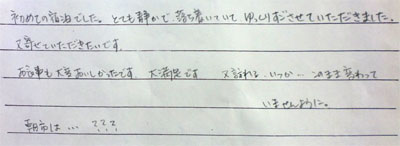 初めての宿泊でした。とても静かで、落ち着いていて ゆっくりすごさせていただきました。
又寄せていただきたいです。
お食事も大変おいしかったです。大満足です 又訪れる、いつか… このまま変わって
いませんように。
朝市は… ???